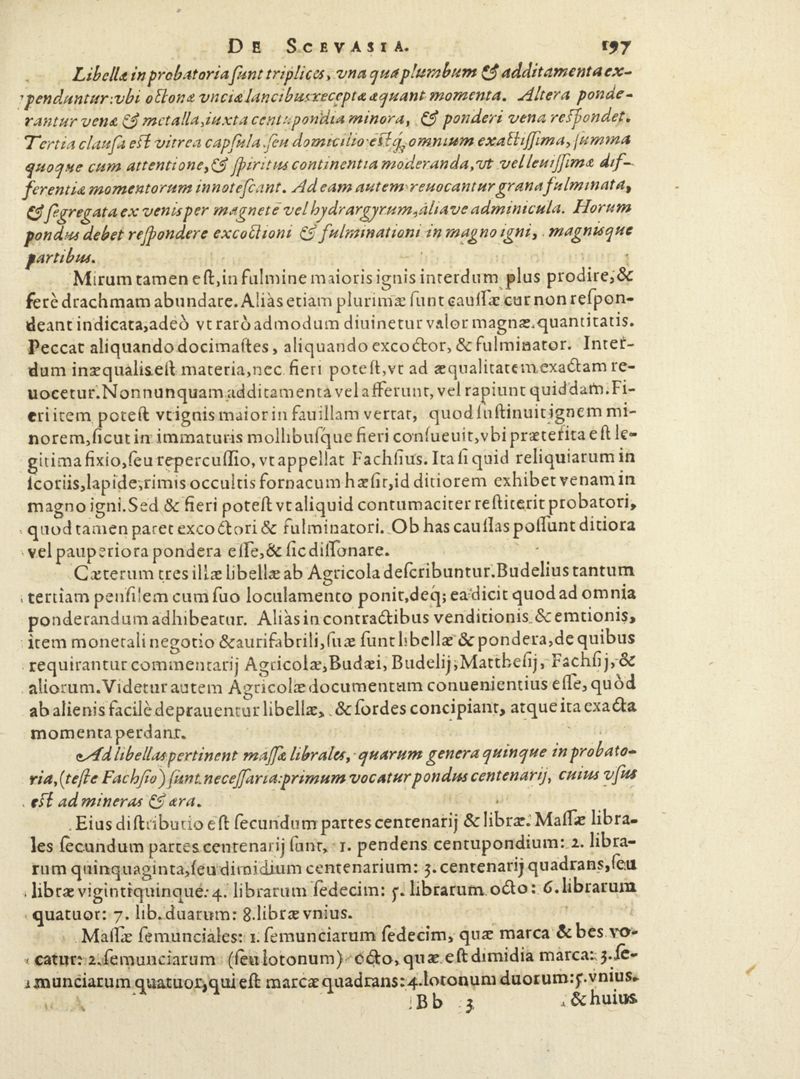 DE SCEVASIA. 197
Libellæ in probatoria sunt triplices, vna quæ plumbum & additamenta ex-
penduntur: vbi octonæ vnciæ lancibus receptæ æquant momenta. Altera ponde-
rantur venæ & metalla, iuxta centupondia minora, & ponderi vena respondet.
Tertia clausa est vitrea capsula seu domicilio estq́; omnium exactissima, summa
quoque cum attentione, & spiritus continentia moderanda, vt vel leuissimæ dif-
ferentiæ momentorum innotescant. Ad eam autem reuocantur grana fulminata,
& segregata ex venis per magnetē vel hydrargyrum, aliave adminicula. Horum
pondus debet respondere excoctioni & fulminationi in magno igni, magnisque
partibus.
Mirum tamen est, in fulmine maioris ignis interdum plus prodire, &
ferè drachmam abundare. Aliàs etiam plurimæ sunt caussæ cur non respon-
deant indicata, adeò vt rarò admodum diuinetur valor magnæ quantitatis.
Peccat aliquando docimastes, aliquando excoctor, & fulminator. Inter-
dum inæqualis est materia, nec fieri potest, vt ad æqualitatem exactam re-
uocetur. Nonnunquam additamenta vel afferunt, vel rapiunt quiddam. Fi-
eri item potest vt ignis maior in fauillam vertat, quod sustinuit ignem mi-
norem, sicut in immaturis mollibusque fieri consueuit, vbi præterita est le-
gitima fixio, seu repercussio, vt appellat Fachsius. Ita si quid reliquiarum in
scoriis, lapide, rimis occultis fornacum hæsit, id ditiorem exhibet venam in
magno igni. Sed & fieri potest vt aliquid contumaciter restiterit probatori,
quod tamen paret excoctori & fulminatori. Ob has caussas possunt ditiora
vel pauperiora pondera esse, & sic dissonare.
Cæterum tres illæ libellæ ab Agricola describuntur. Budelius tantum
tertiam pensilem cum suo loculamento ponit, deq; ea dicit quod ad omnia
ponderandum adhibeatur. Aliàs in contractibus venditionis & emtionis,
item monetali negotio & aurifabrili, suæ sunt libellæ & pondera, de quibus
requirantur commentarij Agricolæ, Budæi, Budelij, Matthesij, Fachsij, &
aliorum. Videtur autem Agricolæ documentum conuenientius esse, quòd
ab alienis facilè deprauentur libellæ, & sordes concipiant, atque ita exacta
momenta perdant.
Ad libellas pertinent massæ librales, quarum genera quinque in probato-
ria, (teste Fachsio) sunt necessaria: primum vocatur pondus centenarij, cuius vsus
est ad mineras & æra.
Eius distributio est secundum partes centenarij & libræ. Massæ libra-
les secundum partes centenarij sunt, 1. pendens centupondium: 2. libra-
rum quinquaginta, seu dimidium centenarium: 3. centenarij quadrans, seu
libræ vigintiquinque: 4. librarum sedecim: 5. librarum octo: 6. librarum
quatuor: 7. lib. duarum: 8. libræ vnius.
Massæ semunciales: 1. semunciarum sedecim, quæ marca & bes vo-
catur: 2. semunciarum (seu lotonum) octo, quæ est dimidia marca: 3. se-
munciarum quatuor, qui est marcæ quadrans: 4. lotonum duorum: 5. vnius.
Bb 3 & huius